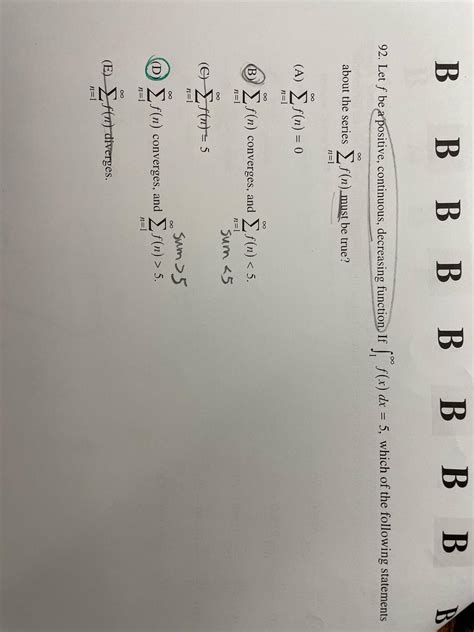 B B B B B B B B B
92. Let f be a positive, continuous, decreasing function. If ∫₁^∞ f(x) dx = 5, which of the following statements
about the series ∑_{n=1}^∞ f(n) must be true?
(A) ∑_{n=1}^∞ f(n) = 0
(B) ∑_{n=1}^∞ f(n) converges, and ∑_{n=1}^∞ f(n) < 5.
sum < 5
(C) ∑_{n=1}^∞ f(n) = 5
(D) ∑_{n=1}^∞ f(n) converges, and ∑_{n=1}^∞ f(n) > 5.
sum > 5
(E) ∑_{n=1}^∞ f(n) diverges.